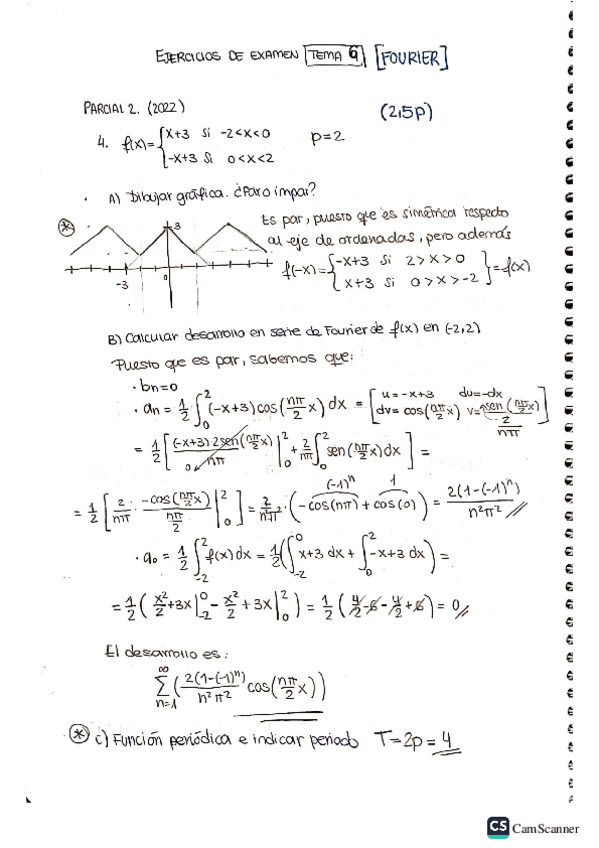 EJERCICIOS DE EXAMEN TEMA 9 [FOURIER]
PARCIAL 2. (2022) (2,5p)
4. f(x)={x+3 si -2<x<0 p=2
-x+3 si 0<x<2
A) Dibujar gráfica. ¿Par o impar?
* 3 -3 0
Es par, puesto que es simétrica respecto
al eje de ordenadas, pero además
f(-x)={-x+3 si 2>x>0
x+3 si 0>x>-2}=f(x)
B) Calcular desarrollo en serie de Fourier de f(x) en (-2,2)
Puesto que es par, sabemos que:
· bn=0
· an = 1/2 ∫₀² (-x+3)cos(nπ/2 x) dx = [u=-x+3 du=-dx
dv=cos(nπ/2 x) v=sen(nπ/2 x) 2/nπ]
= 1/2 [(-x+3)2sen(nπ/2 x)/nπ |₀² + 2/nπ ∫₀² sen(nπ/2 x)dx] =
= 1/2 [2/nπ · -cos(nπ/2 x)/(nπ/2) |₀²] = 2/n²π² · (-cos(nπ) + cos(0)) = 2(1-(-1)ⁿ)/n²π²
(-1)ⁿ 1
· a₀ = 1/2 ∫₋₂² f(x)dx = 1/2(∫₋₂⁰ x+3 dx + ∫₀² -x+3 dx) =
= 1/2 (x²/2 +3x|₋₂⁰ - x²/2 + 3x|₀²) = 1/2 (4/2 - 6 - 4/2 + 6) = 0
El desarrollo es:
∑ₙ₌₁^∞ (2(1-(-1)ⁿ)/n²π² cos(nπ/2 x))
* c) Función periódica e indicar periodo T=2p=4
CS CamScanner